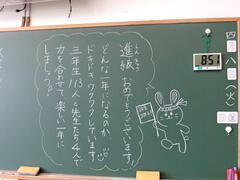 進級
おめでとうございます。
どんな一年になるのか
ドキドキワクワクしています。
三年生113人と先生たち4人で
力を合わせて、楽しい一年に
しましょう!
四月八日(火)